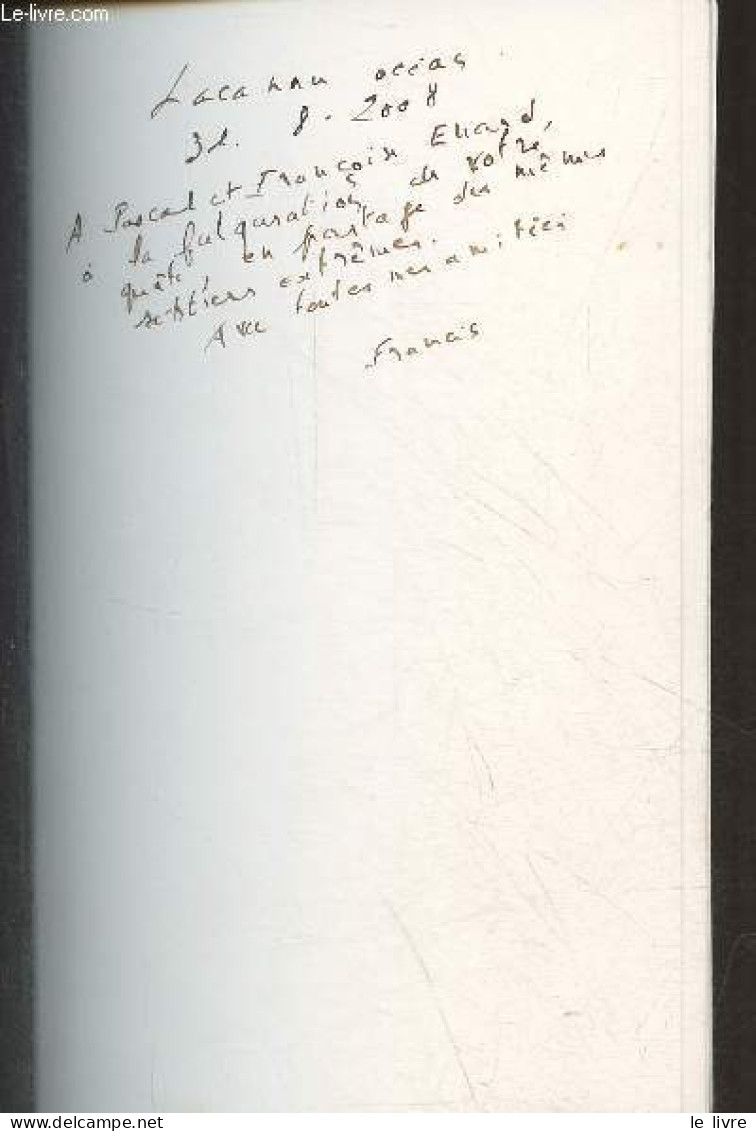 Le-livre.com
Lacanau océan.
31. 8. 2008
A Pascal et Françoise Enard,
à la fulguration de votre
quête, en partage des mêmes
sentiers extrêmes.
Avec toutes mes amitiés
Francis
le livre